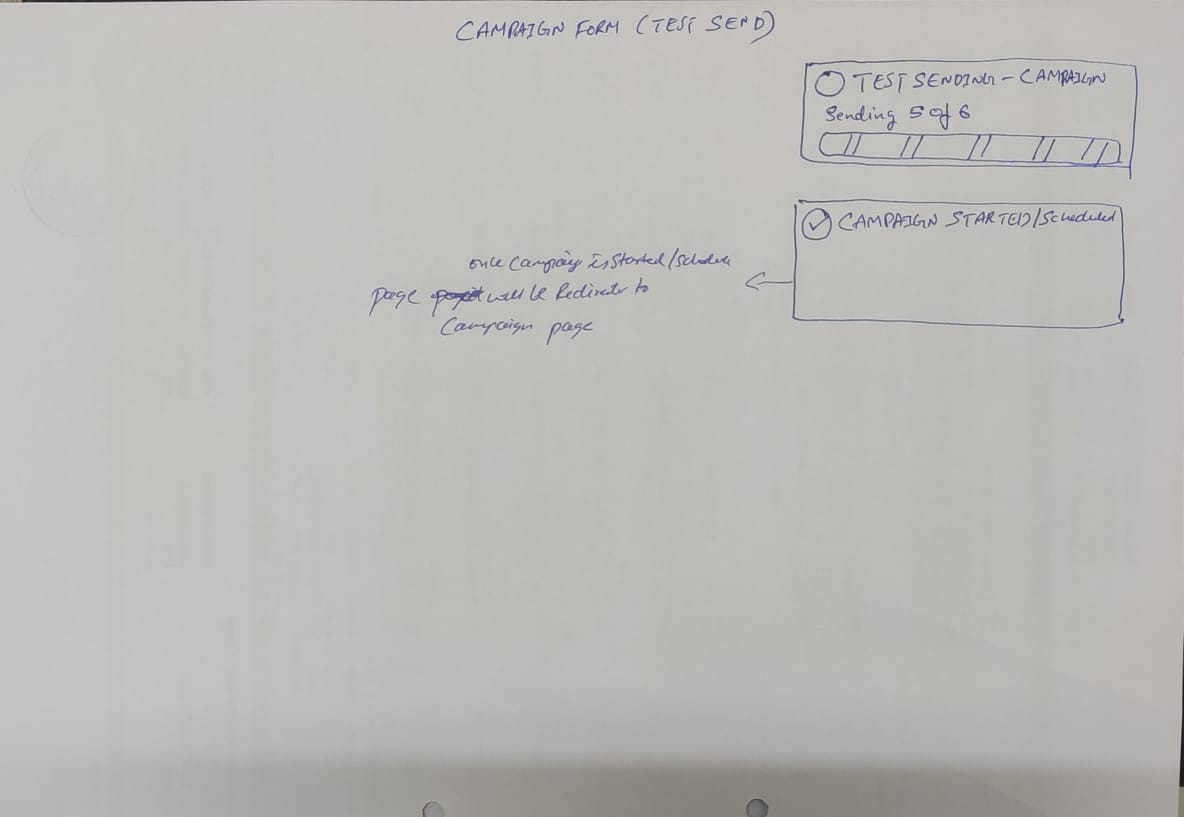 CAMPAIGN FORM (TEST SEND)
TEST SENDING - CAMPAIGN
Sending 5 of 6
CAMPAIGN STARTED/Scheduled
once Campaig is started/schdule
page will be Redirect to
Campaign page